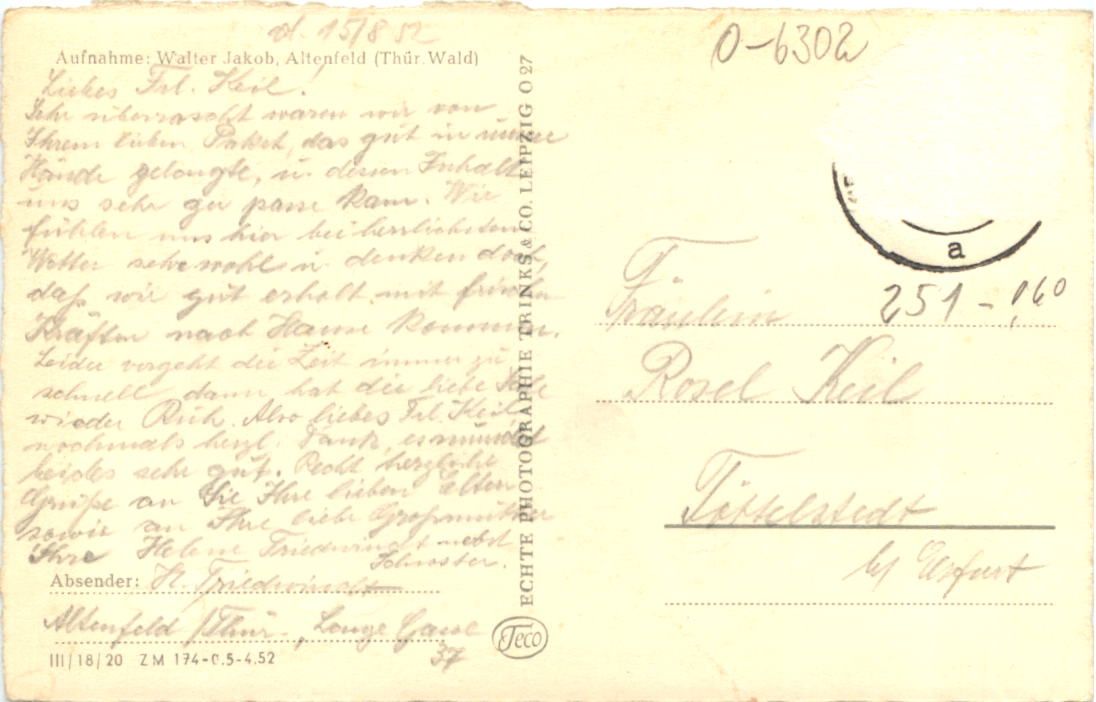 d. 15/8 52
Aufnahme: Walter Jakob, Altenfeld (Thür. Wald)
Liebes Frl. Keil!
Sehr überrascht waren wir von
Ihrem lieben Paket, das gut in unsere
Hände gelangte, u. dessen Inhalt
uns sehr zu passe kam. Wir
fühlen uns hier bei herrlichstem
Wetter sehr wohl u. denken doch,
daß wir gut erholt mit frischen
Kräften nach Hause kommen.
Leider vergeht die Zeit immer zu
schnell dann hat die liebe Seele
wieder Ruh. Also liebes Frl. Keil
nochmals herzl. Dank, es mundet
beides sehr gut. Recht herzliche
Grüße an Sie Ihre lieben Eltern
sowie an Ihre liebe Großmutter
Ihre Helene Friedwindt nebst
Schwester.
Absender: H. Friedwindt
Altenfeld /Thür., Lange Gasse
37
III/18/20 ZM 174-0.5-4.52
ECHTE PHOTOGRAPHIE TRINKS & CO. LEIPZIG O 27
Teco
O-6302
a
251-,60
Fräulein
Rosel Keil
Töttelstedt
b/ Erfurt